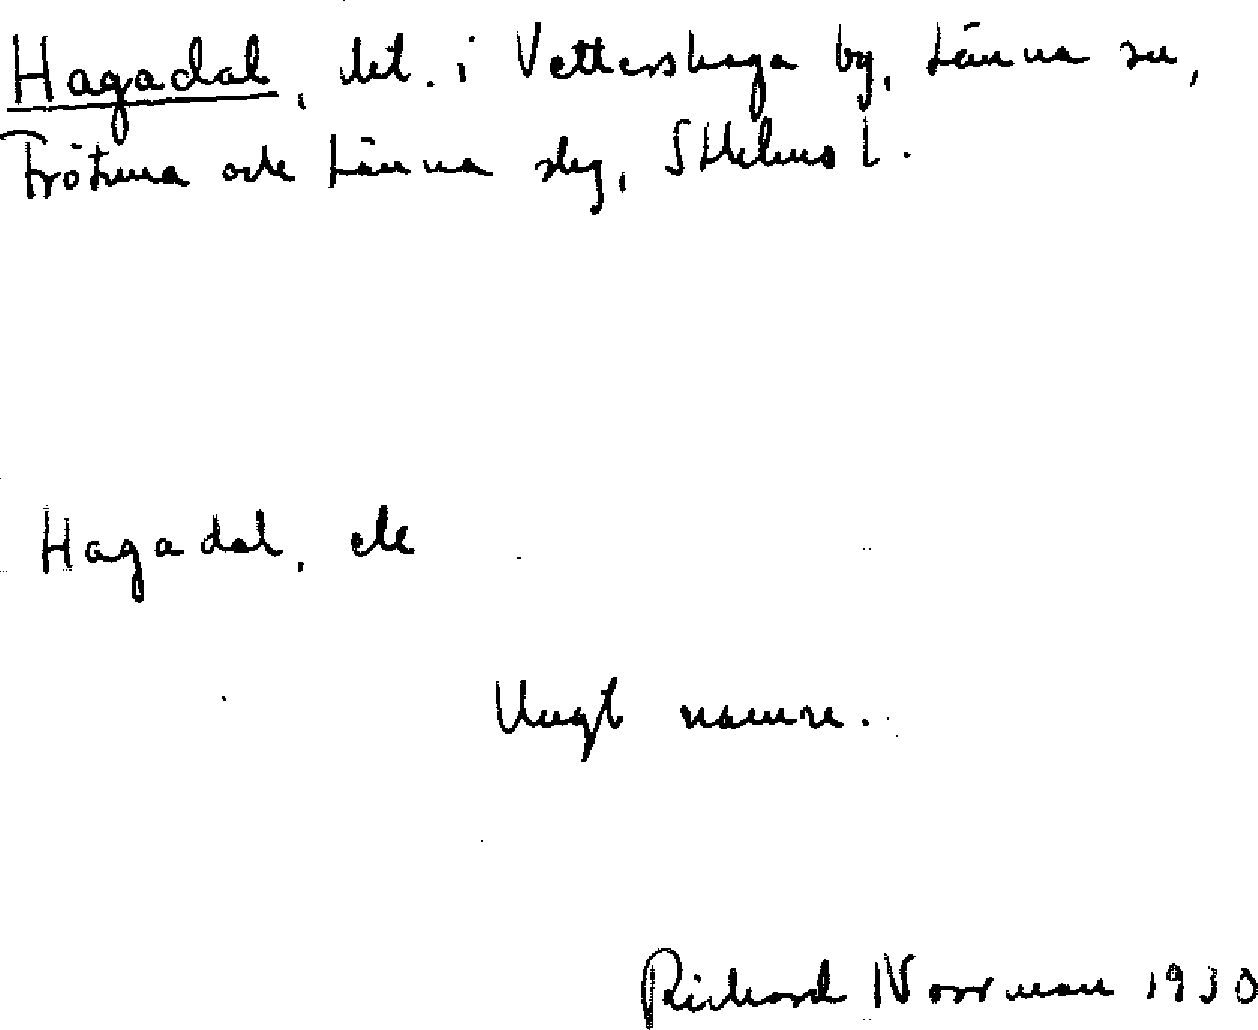 Hagadal, lht. i Vettershaga by, Länna sn,
Frötuna och Länna slg, Sthlms l.
Hagadal, etc
Ungt namn.
Richard Norrman 1930